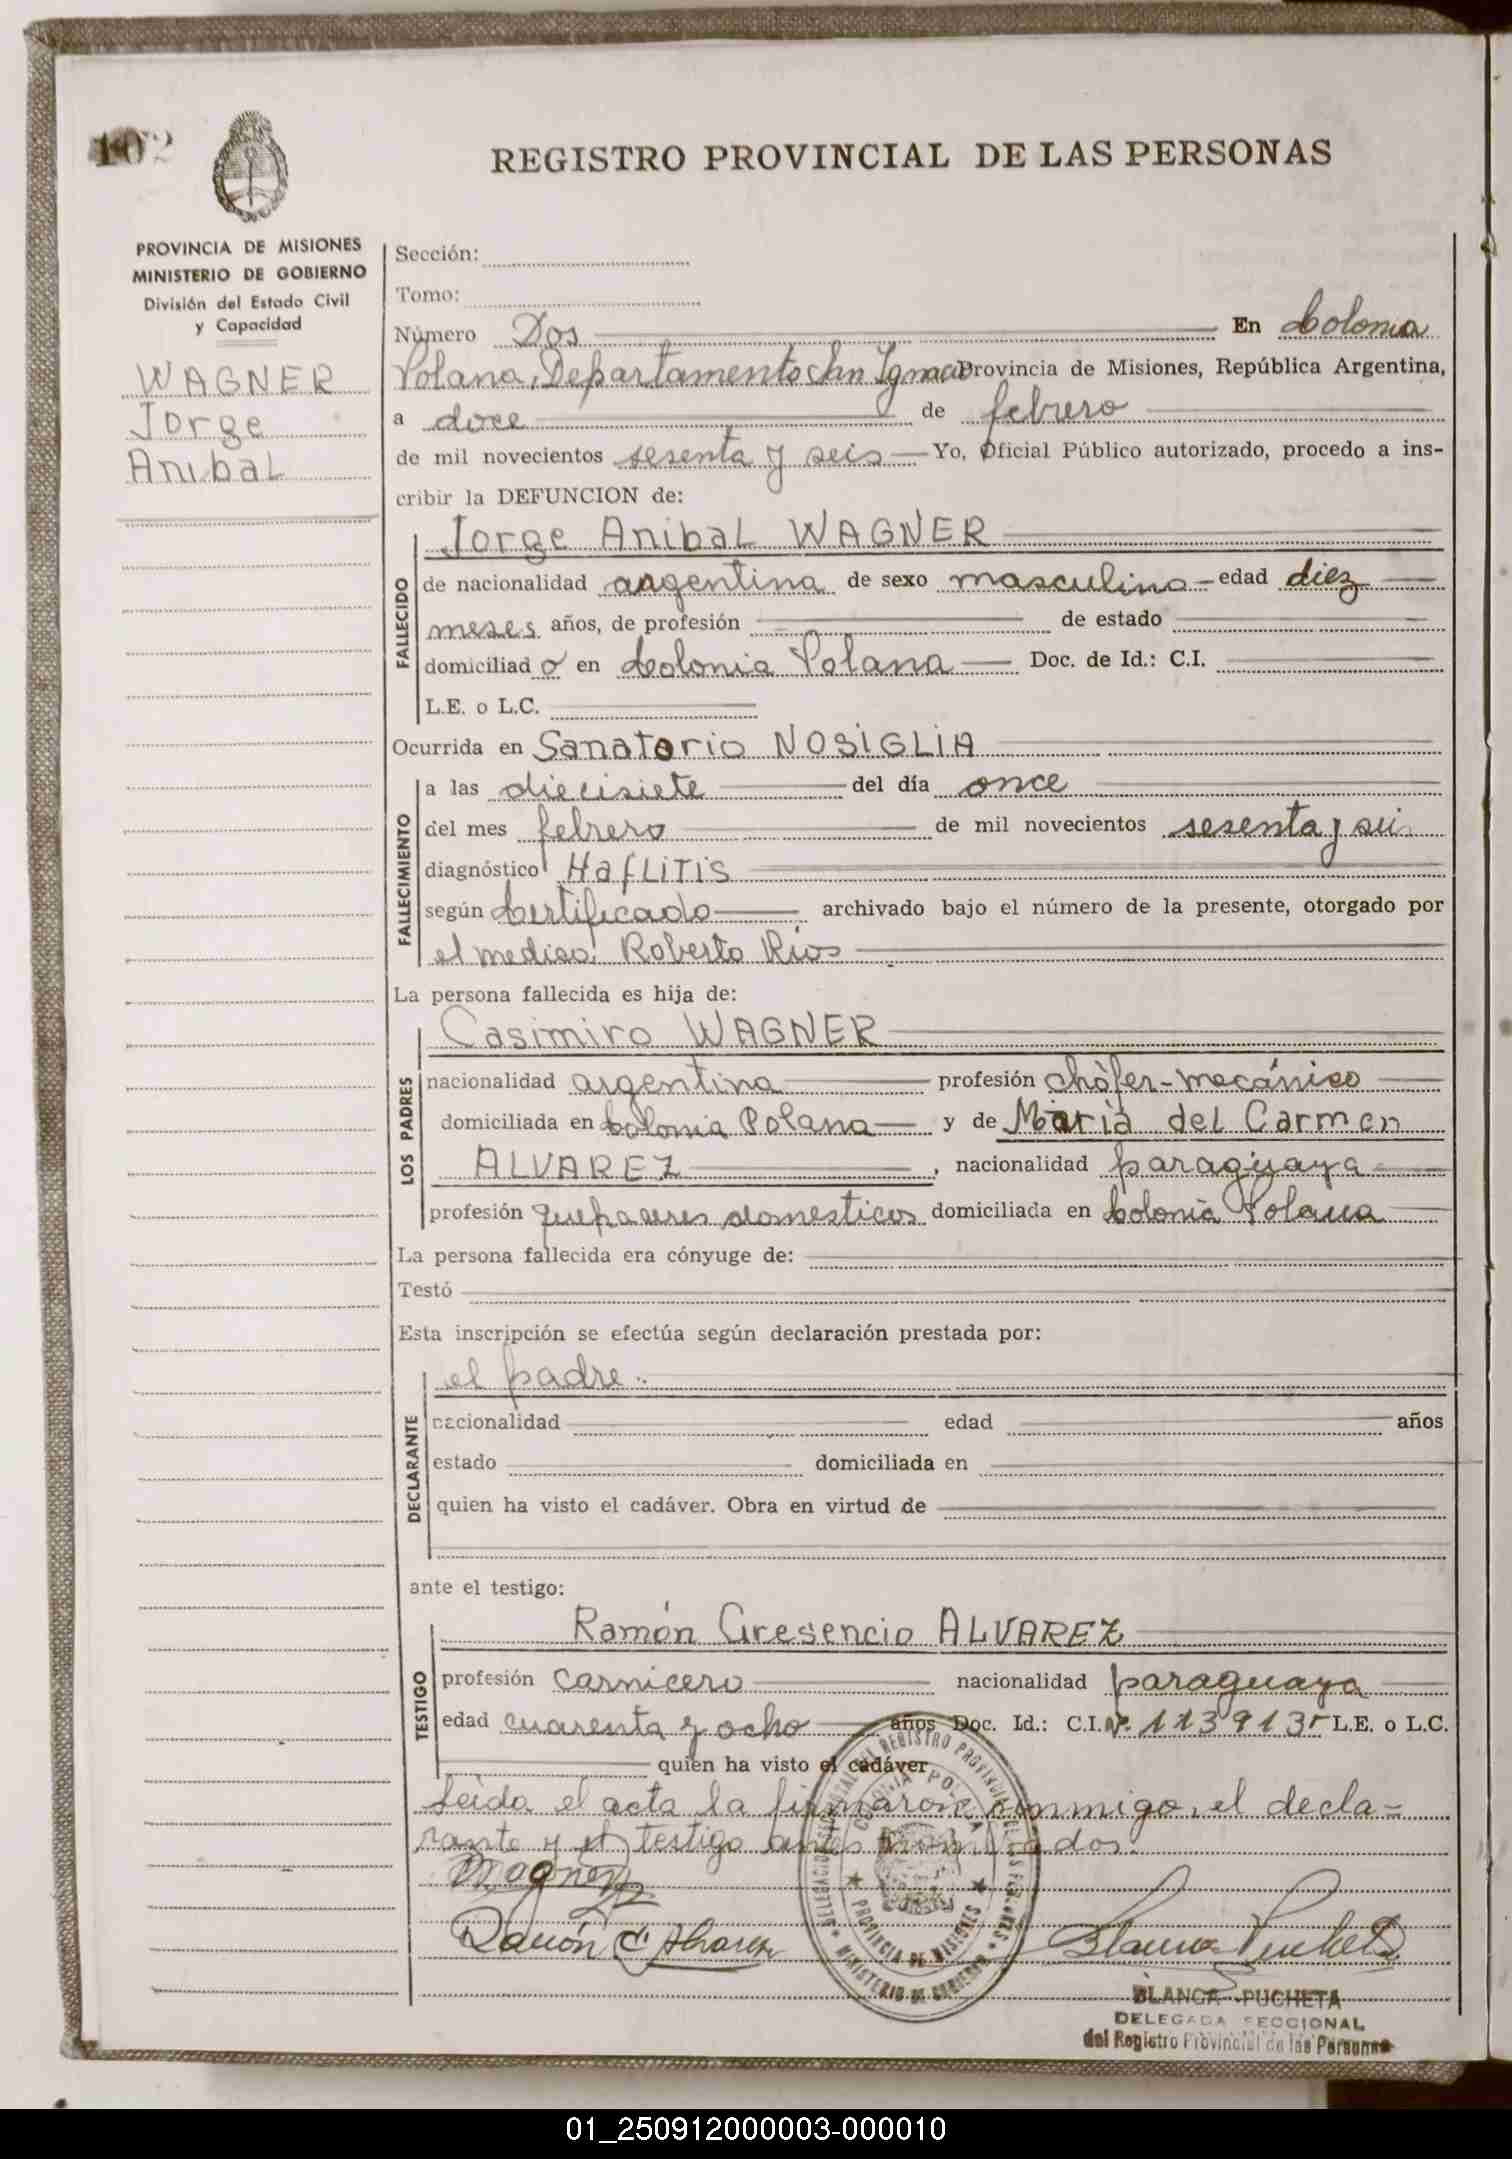 102
REGISTRO PROVINCIAL DE LAS PERSONAS
PROVINCIA DE MISIONES
MINISTERIO DE GOBIERNO
División del Estado Civil
y Capacidad
WAGNER
Jorge
Anibal
Sección:
Tomo:
Número Dos En Colonia
Polana, Departamento San Ignacio Provincia de Misiones, República Argentina,
a doce de febrero
de mil novecientos sesenta y seis Yo, Oficial Público autorizado, procedo a ins-
cribir la DEFUNCION de:
Jorge Anibal WAGNER
FALLECIDO
de nacionalidad argentina de sexo masculino edad diez
meses años, de profesión de estado
domiciliad o en Colonia Polana Doc. de Id.: C.I.
L.E. o L.C.
Ocurrida en Sanatorio NOSIGLIA
FALLECIMIENTO
a las diecisiete del día once
del mes febrero de mil novecientos sesenta y sei
diagnóstico
según Certificado archivado bajo el número de la presente, otorgado por
el medico: Roberto Rios
La persona fallecida es hija de:
Casimiro WAGNER
LOS PADRES
nacionalidad argentina profesión chófer-mecánico
domiciliada en Colonia Polana y de Maria del Carmen
ALVAREZ, nacionalidad paraguaya
profesión quehaceres domesticos domiciliada en Colonia Polana
La persona fallecida era cónyuge de:
Testó
Esta inscripción se efectúa según declaración prestada por:
el padre.
DECLARANTE
nacionalidad edad años
estado domiciliada en
quien ha visto el cadáver. Obra en virtud de
ante el testigo:
Ramón Cresencio ALVAREZ
TESTIGO
profesión carnicero nacionalidad paraguaya
edad cuarenta y ocho años Doc. Id.: C.I. Nº 113913 L.E. o L.C.
quien ha visto el cadáver
Leida el acta la firmaron conmigo, el decla-
rante y el testigo antes nombrados.
Wagner
Ramón C. Alvarez
Blanca Pucheta
COLONIA POLANA
PROVINCIA DE MISIONES
MINISTERIO DE GOBIERNO
BLANCA PUCHETA
DELEGADA SECCIONAL
del Registro Provincial de las Personas
01_250912000003-000010